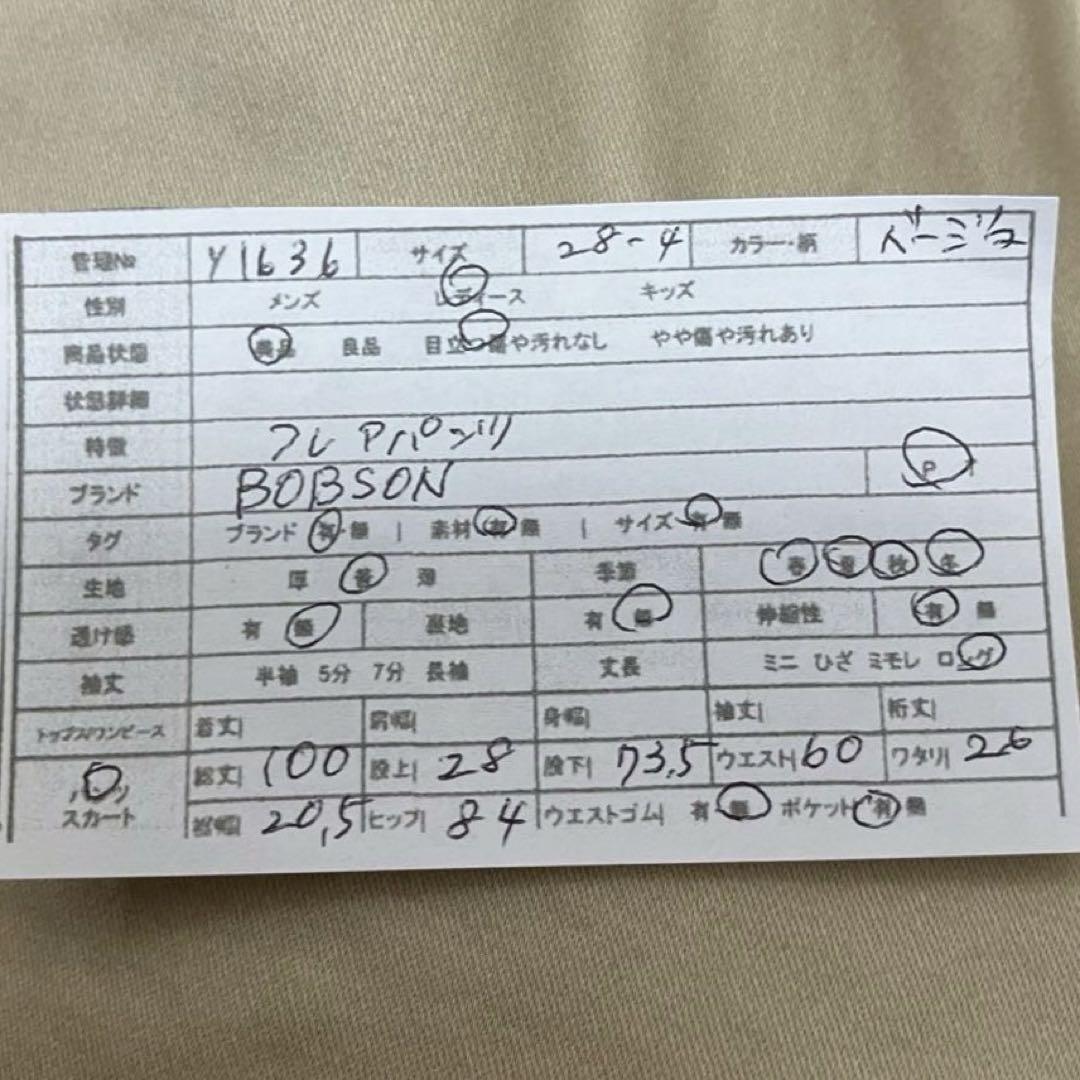 管理No Y1636 サイズ 28-4 カラー・柄 ベージュ
性別 メンズ レディース キッズ
商品状態 美品 良品 目立つ傷や汚れなし やや傷や汚れあり
状態詳細
特徴 フレアパンツ
ブランド BOBSON P
タグ ブランド 有・無 | 素材 有 無 | サイズ 有 無
生地 厚 普 薄 季節 春 夏 秋 冬
透け感 有 無 裏地 有 無 伸縮性 有 無
袖丈 半袖 5分 7分 長袖 丈長 ミニ ひざ ミモレ ロング
トップス/ワンピース 着丈| 肩幅| 身幅| 袖丈| 裄丈|
パンツ 総丈| 100 股上| 28 股下| 73,5 ウエスト| 60 ワタリ| 26
スカート 裾幅| 20,5 ヒップ| 84 ウエストゴム| 有 無 ポケット| 有 無